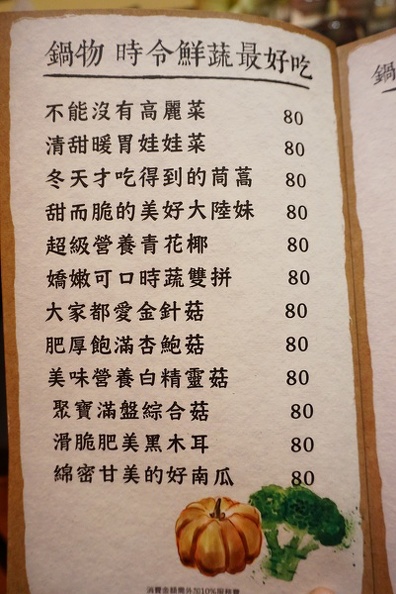 鍋物 時令鮮蔬最好吃
不能沒有高麗菜 80
清甜暖胃娃娃菜 80
冬天才吃得到的茼蒿 80
甜而脆的美好大陸妹 80
超級營養青花椰 80
嬌嫩可口時蔬雙拼 80
大家都愛金針菇 80
肥厚飽滿杏鮑菇 80
美味營養白精靈菇 80
聚寶滿盤綜合菇 80
滑脆肥美黑木耳 80
綿密甘美的好南瓜 80
消費金額需外加10%服務費
鍋